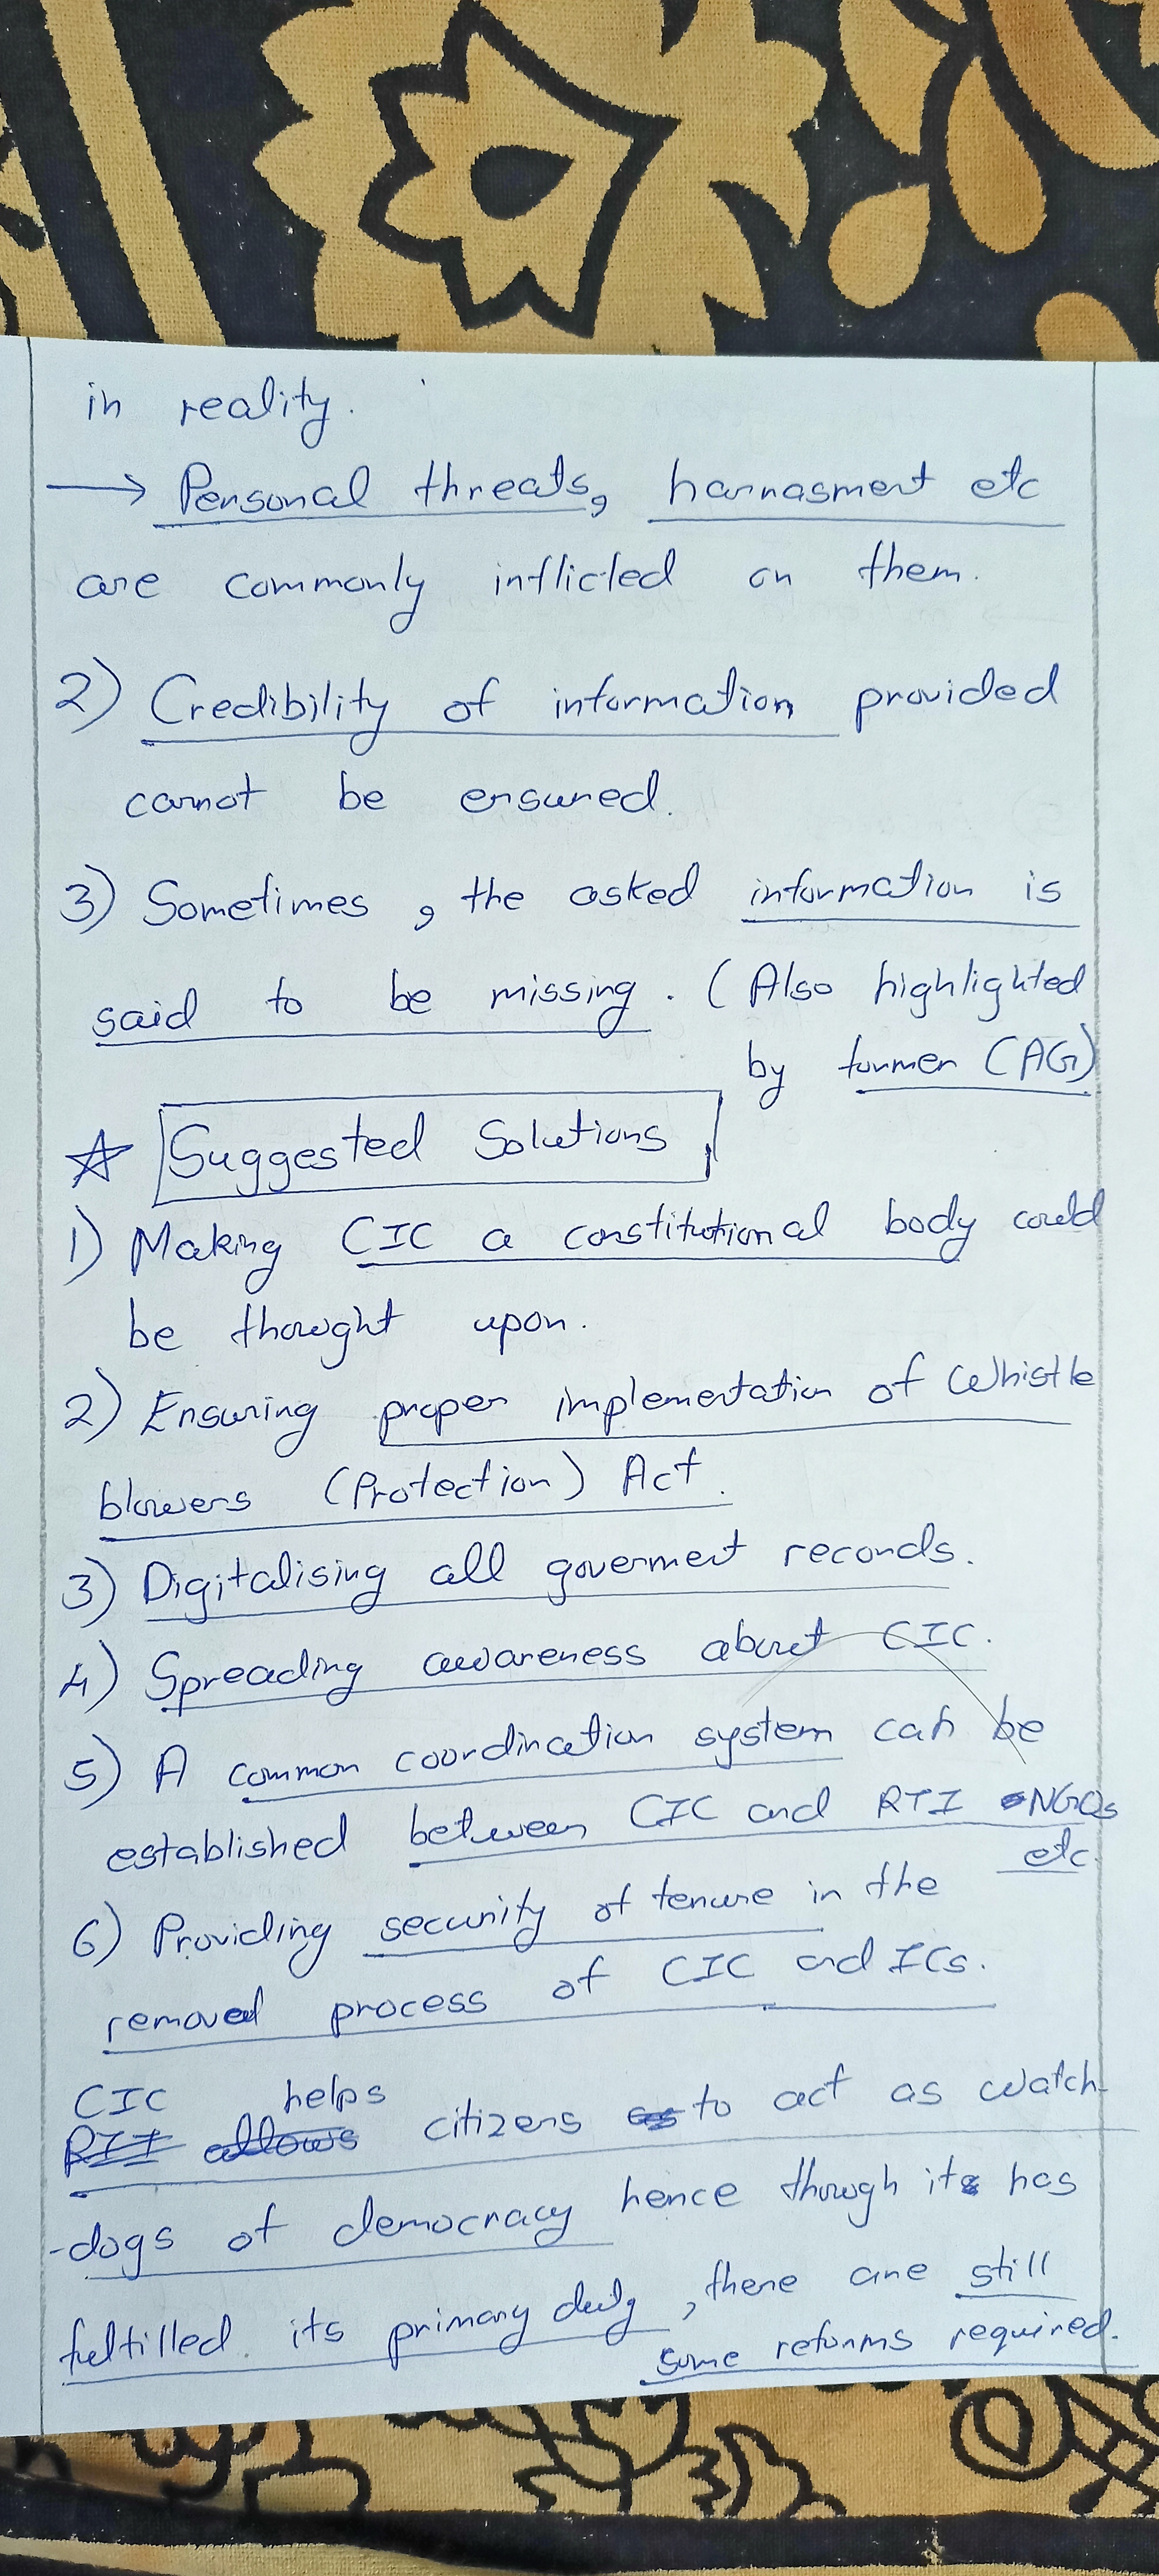 in reality.
→ Personal threats, harrasment etc
are commonly inflicted on them.
2) Credibility of information provided
cannot be ensured.
3) Sometimes, the asked information is
said to be missing. (Also highlighted
by former CAG)
☆ Suggested Solutions
1) Making CIC a constitutional body could
be thought upon.
2) Ensuring proper implementation of Whistle
blowers (Protection) Act.
3) Digitalising all goverment records.
4) Spreading awareness about CIC.
5) A common coordination system can be
established between CIC and RTI NGOs
etc.
6) Providing security of tenure in the
removal process of CIC and ICs.
CIC helps
RTI allows citizens as to act as watch-
-dogs of democracy hence though it has
fulfilled its primary duty, there are still
some reforms required.